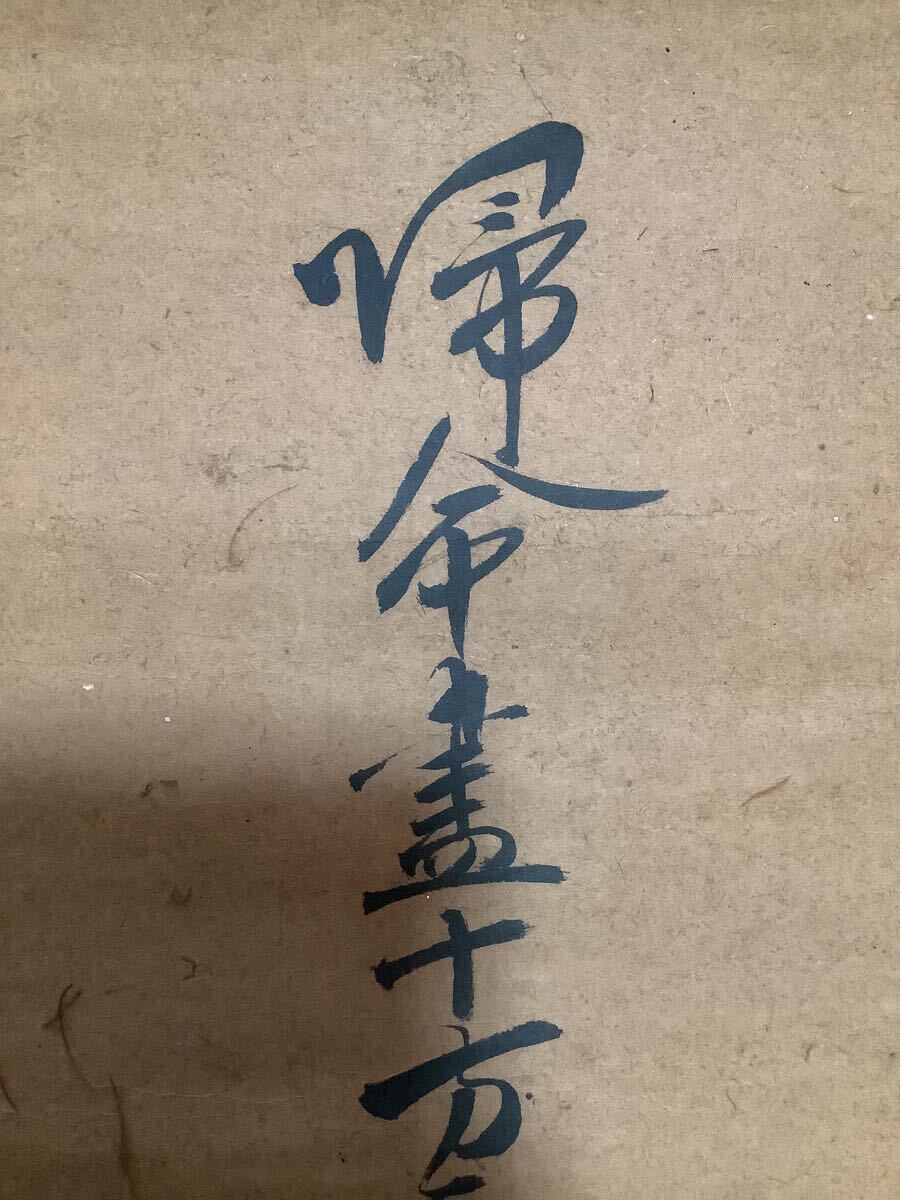 歸命盡十方